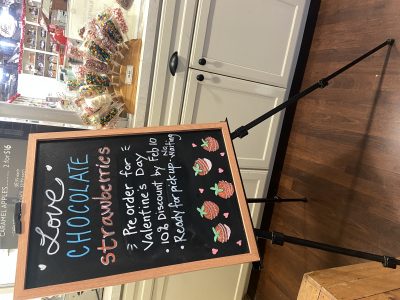 Love
CHOCOLATE
strawberries
Pre order for
Valentine's Day
• 10% Discount by Feb 10
• Ready for pick up - No
waiting
CARAMEL APPLES ..... 2 FOR $16